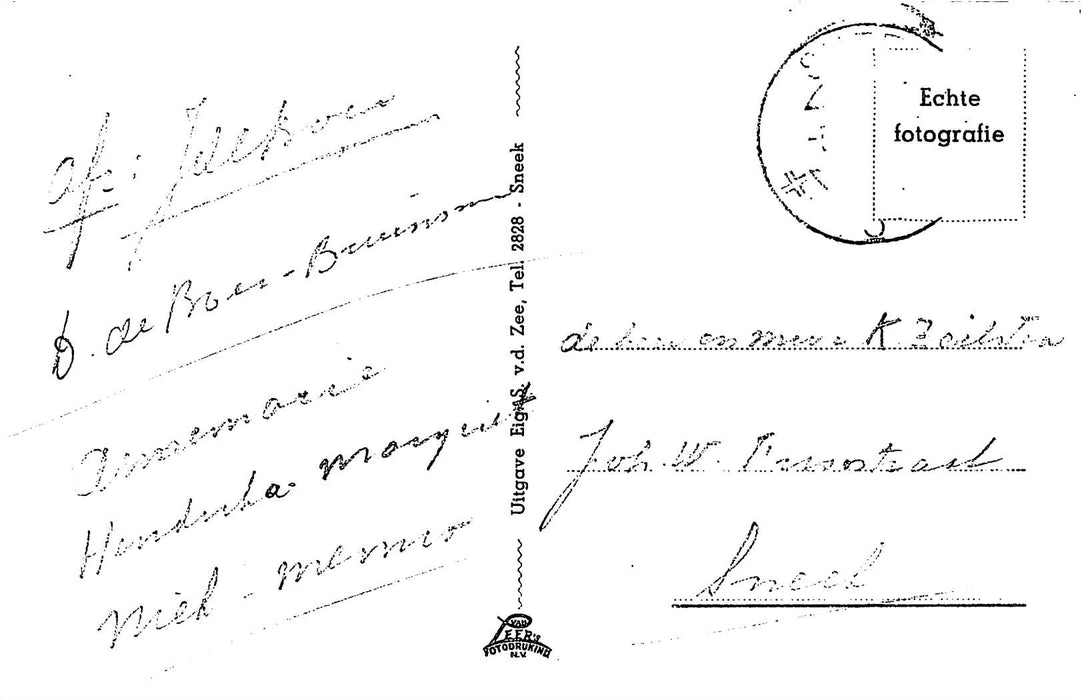 afz: J de Boer
D. de Boer-Bruinsma
Annemarie
Hendrika Margriet
Niek - Menno
Uitgave Eig. S. v.d. Zee, Tel. 2828 - Sneek
VAN LEER'S
FOTODRUKIND
N.V.
Echte
fotografie
de heer en mevr K Zeilstra
Joh. W. Frisostraat
Sneek